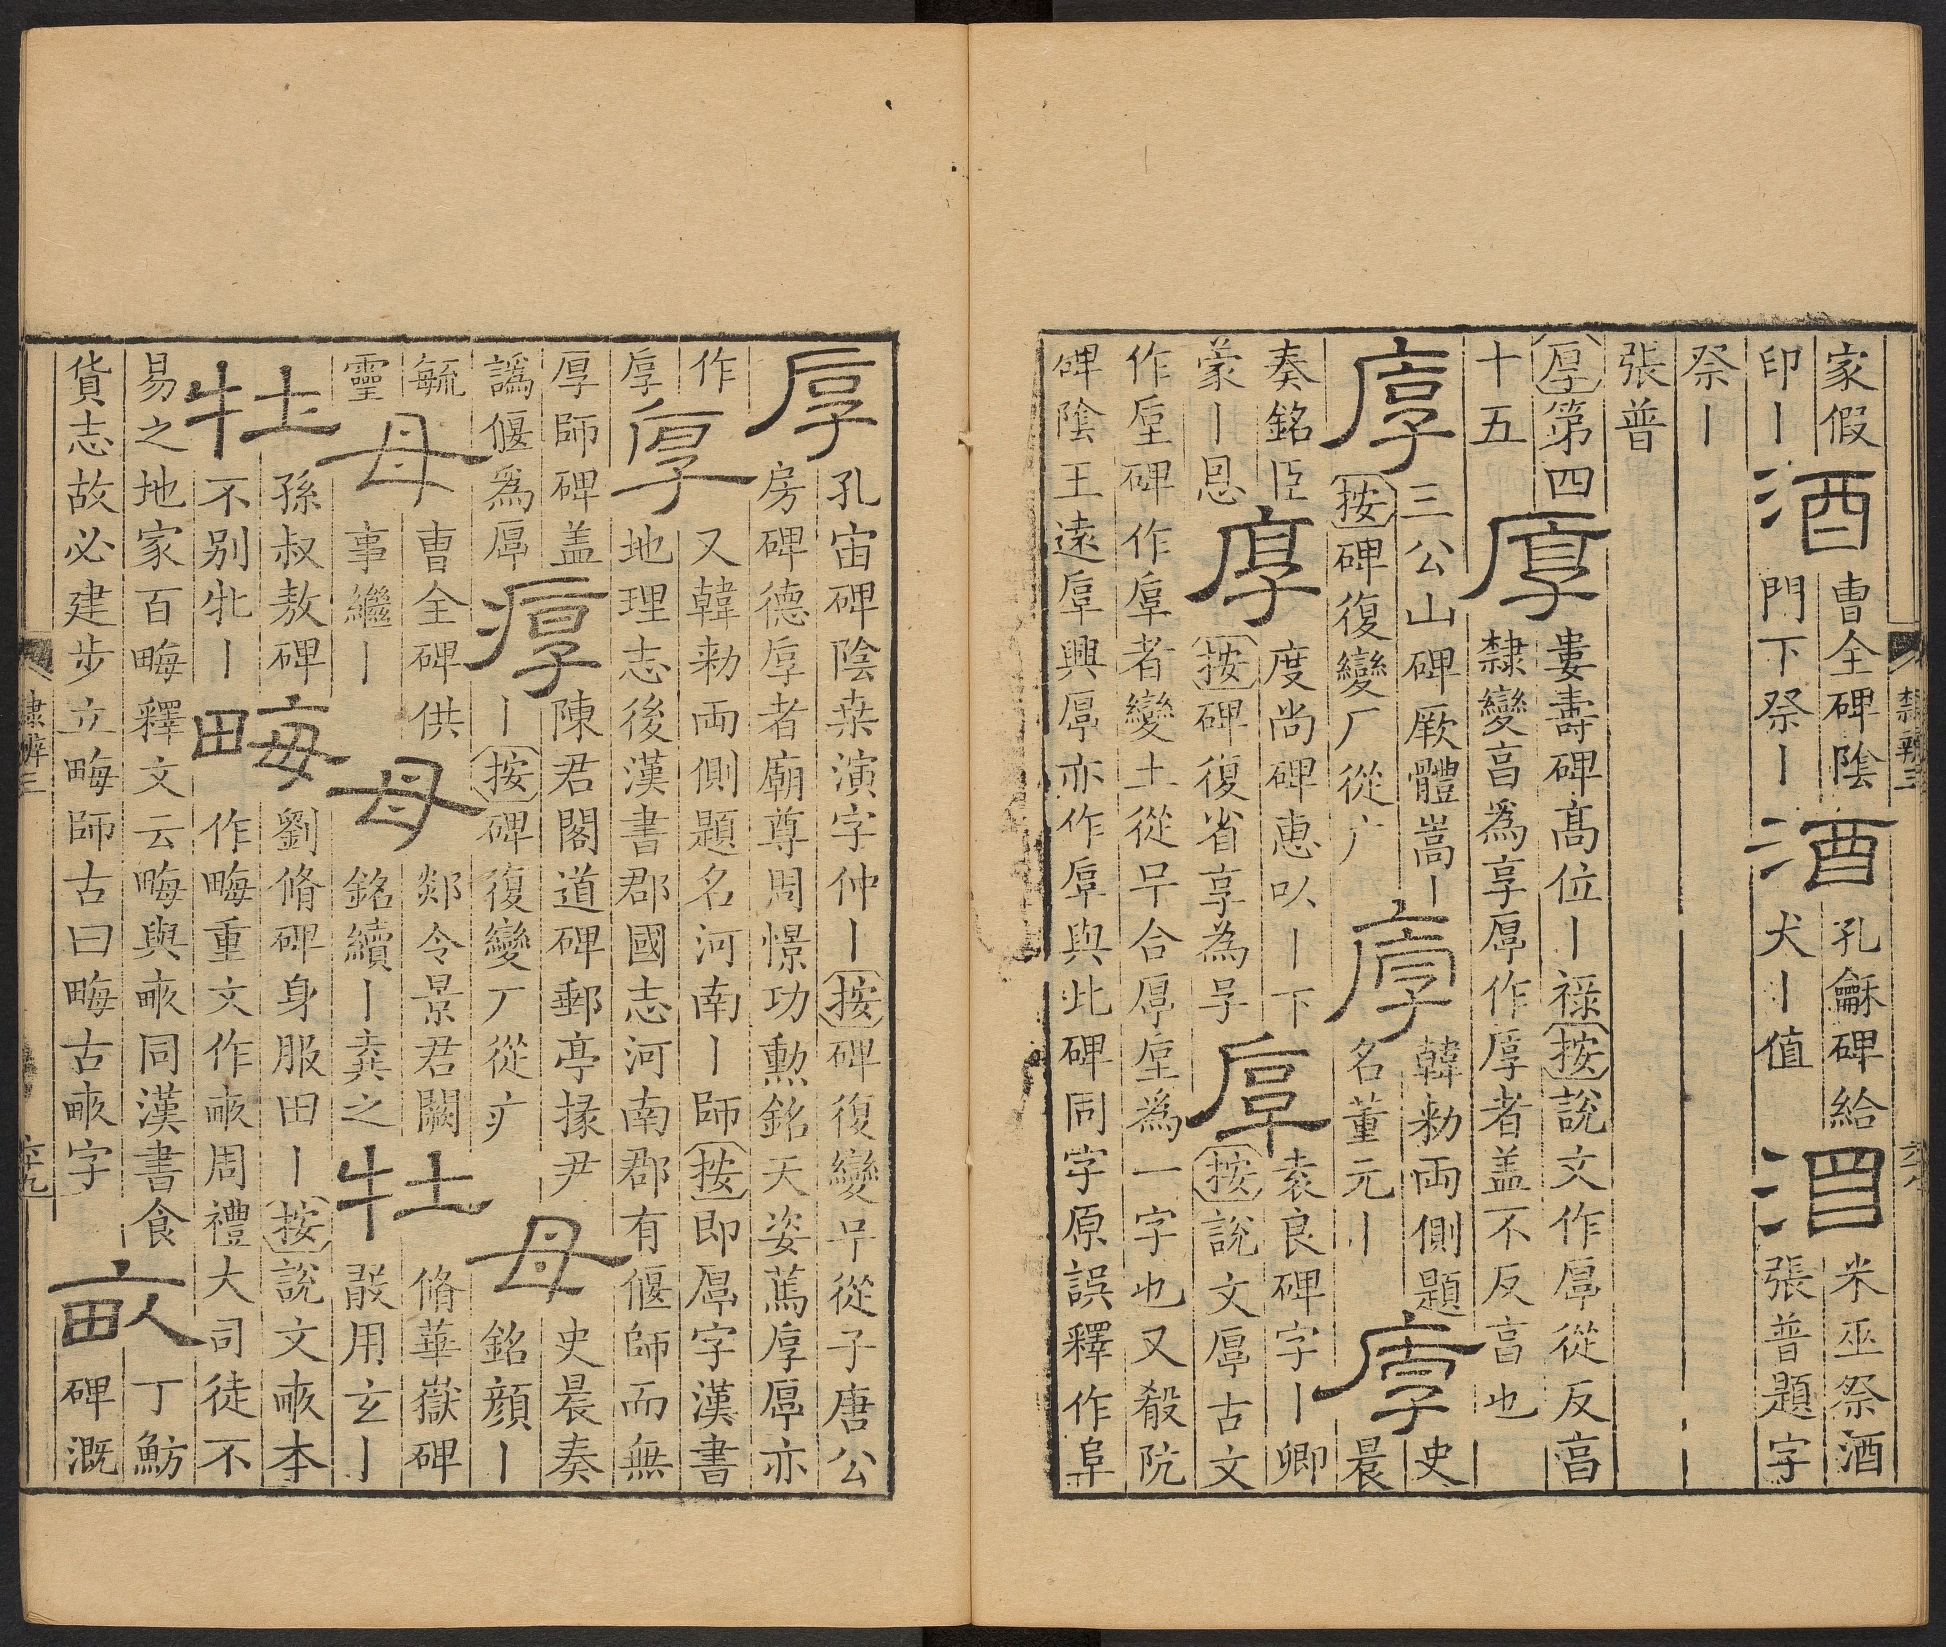 家假
印丨
酒
曹全碑陰
門下祭丨
酒
孔龢碑給
犬丨值
酒
米巫祭酒
張普題字
祭丨
張普
厚第四
十五
厚
婁壽碑高位丨祿按說文作厚從反亯
隸變亯爲享厚作厚者盖不反亯也
厚
三公山碑厥體嵩丨
按碑復變厂從广
厚
韓勑兩側題
名董元丨
厚
史
晨
奏銘臣
蒙丨恩
厚
度尚碑惠以丨下
按碑復省享為㝵
厚
袁良碑字丨卿
按說文厚古文
作垕碑作厚者變土從𠦒合厚垕為一字也又殽阬
碑陰王遠厚興厚亦作厚與此碑同字原誤釋作阜
隸辨三
厚
孔宙碑陰桒演字仲丨按碑復變𠦒從子唐公
房碑德厚者廟尊周憬功勳銘天姿篤厚厚亦
作
厚
厚
又韓勑兩側題名河南丨師按即厚字漢書
地理志後漢書郡國志河南郡有偃師而無
厚師碑盖
譌偃爲厚
厚
陳君閣道碑郵亭掾尹
丨按碑復變厂從疒
母
史晨奏
銘顏丨
毓
靈
母
曹全碑供
事繼丨
母
郯令景君闕
銘續丨之
牡
脩華嶽碑
用玄丨
牡
孫叔敖碑
不別牝丨
畮
劉脩碑身服田丨按說文畞本
作畮重文作畞周禮大司徒不
易之地家百畮釋文云畮與畞同漢書食
貨志故必建步立畮師古曰畮古畞字
畞
丁魴
碑溉
隸辨三
六十九